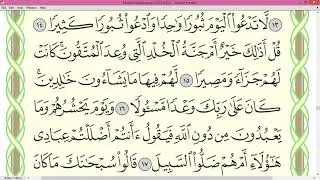 ١٣ لَّا تَدْعُوا۟ ٱلْيَوْمَ ثُبُورًا وَٰحِدًا وَٱدْعُوا۟ ثُبُورًا كَثِيرًا ١٤
قُلْ أَذَٰلِكَ خَيْرٌ أَمْ جَنَّةُ ٱلْخُلْدِ ٱلَّتِى وُعِدَ ٱلْمُتَّقُونَ ۚ كَانَتْ
لَهُمْ جَزَآءً وَمَصِيرًا ١٥ لَّهُمْ فِيهَا مَا يَشَآءُونَ خَٰلِدِينَ ۚ
كَانَ عَلَىٰ رَبِّكَ وَعْدًا مَّسْـُٔولًا ١٦ وَيَوْمَ يَحْشُرُهُمْ وَمَا
يَعْبُدُونَ مِن دُونِ ٱللَّهِ فَيَقُولُ ءَأَنتُمْ أَضْلَلْتُمْ عِبَادِى
هَٰٓؤُلَآءِ أَمْ هُمْ ضَلُّوا۟ ٱلسَّبِيلَ ١٧ قَالُوا۟ سُبْحَٰنَكَ مَا كَانَ